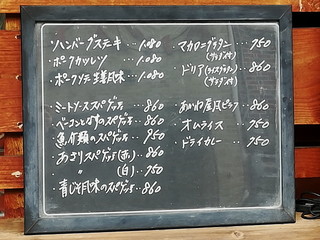 ハンバーグステーキ…1,080
ポークカツレツ…1,080
ポークソテー生姜風味…1,080
ミートソーススパゲッティ…860
ベーコンとなすのスパゲッティ…860
魚介類のスパゲッティ…950
あさりスパゲッティ(赤)…860
〃(白)…750
青じそ風味のスパゲッティ…860
マカロニグラタン…750
(サラダ付)
ドリア(ライスグラタン)…860
(サラダ付)
あかね屋風ピラフ…860
オムライス…750
ドライカレー…750